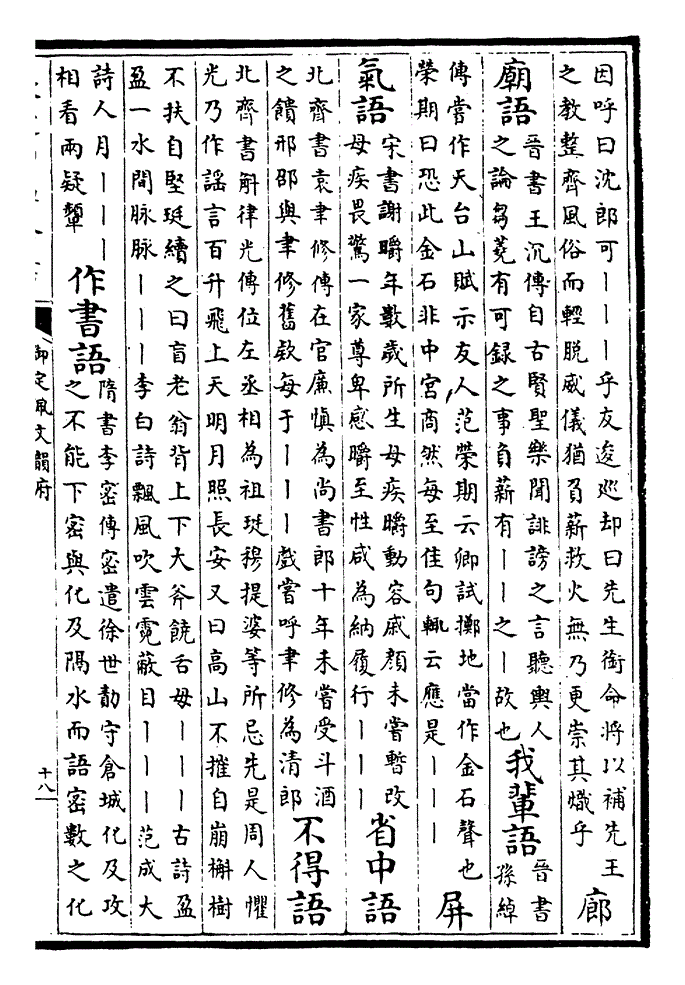 因呼曰沈郎可丨丨丨乎友逡巡却曰先生銜命將以補先王
之教整齊風俗而輕脫威儀猶負薪救火無乃更崇其熾乎
廊
廟語
晉書王沉傳自古賢聖樂聞誹謗之言聽輿人
之論芻蕘有可録之事負薪有丨丨之丨故也
我輩語
晉書
孫綽
傳嘗作天台山賦示友人范榮期云卿試擲地當作金石聲也
榮期曰恐此金石非中宮商然每至佳句輒云應是丨丨丨
屏
氣語
宋書謝㬭年數歲所生母疾㬭動容戚顏未嘗暫改
母疾畏驚一家尊卑感㬭至性咸為納履行丨丨丨
省中語
北齊書袁聿修傳在官廉慎為尚書郎十年未嘗受斗酒
之饋邢邵與聿修舊欵每于丨丨丨戲嘗呼聿修為清郎
不得語
北齊書斛律光傳位左丞相為祖珽穆提婆等所忌先是周人懼
光乃作謠言百升飛上天明月照長安又曰高山不摧自崩槲樹
不扶自竪珽續之曰盲老翁背上下大斧饒舌母丨丨丨古詩盈
盈一水間脉脉丨丨丨李白詩飄風吹雲霓蔽目丨丨丨范成大
詩人月丨丨丨
相看兩疑顰
作書語
隋書李密傳密遣徐世勣守倉城化及攻
之不能下密與化及隔水而語密數之化
御定佩文韻府
十八